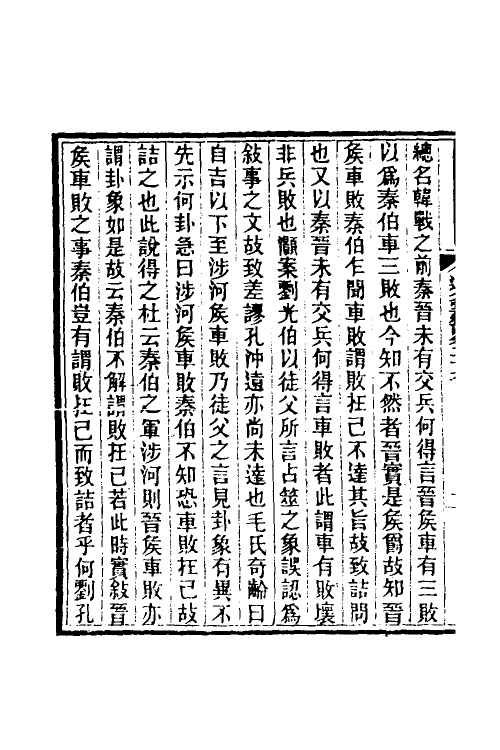 總名韓戰之前秦晉未有交兵何得言晉矦車有三敗
以爲秦伯車三敗也今知不然者晉實是矦爵故知晉
矦車敗秦伯乍聞車敗謂敗在己不達其旨故致詰問
也又以秦晉未有交兵何得言車敗者此謂車有敗壞
非兵敗也顯案劉光伯以徒父所言占筮之象誤認爲
敍事之文故致差謬孔沖遠亦尚未達也毛氏奇齡曰
自吉以下至涉河矦車敗乃徒父之言見卦象有異不
先示何卦急曰涉河矦車敗秦伯不知恐車敗在己故
詰之也此說得之杜云秦伯之軍涉河則晉矦車敗亦
謂卦象如是故云秦伯不解謂敗在己若此時實敍晉
矦車敗之事秦伯豈有謂敗在己而致詰者乎何劉孔